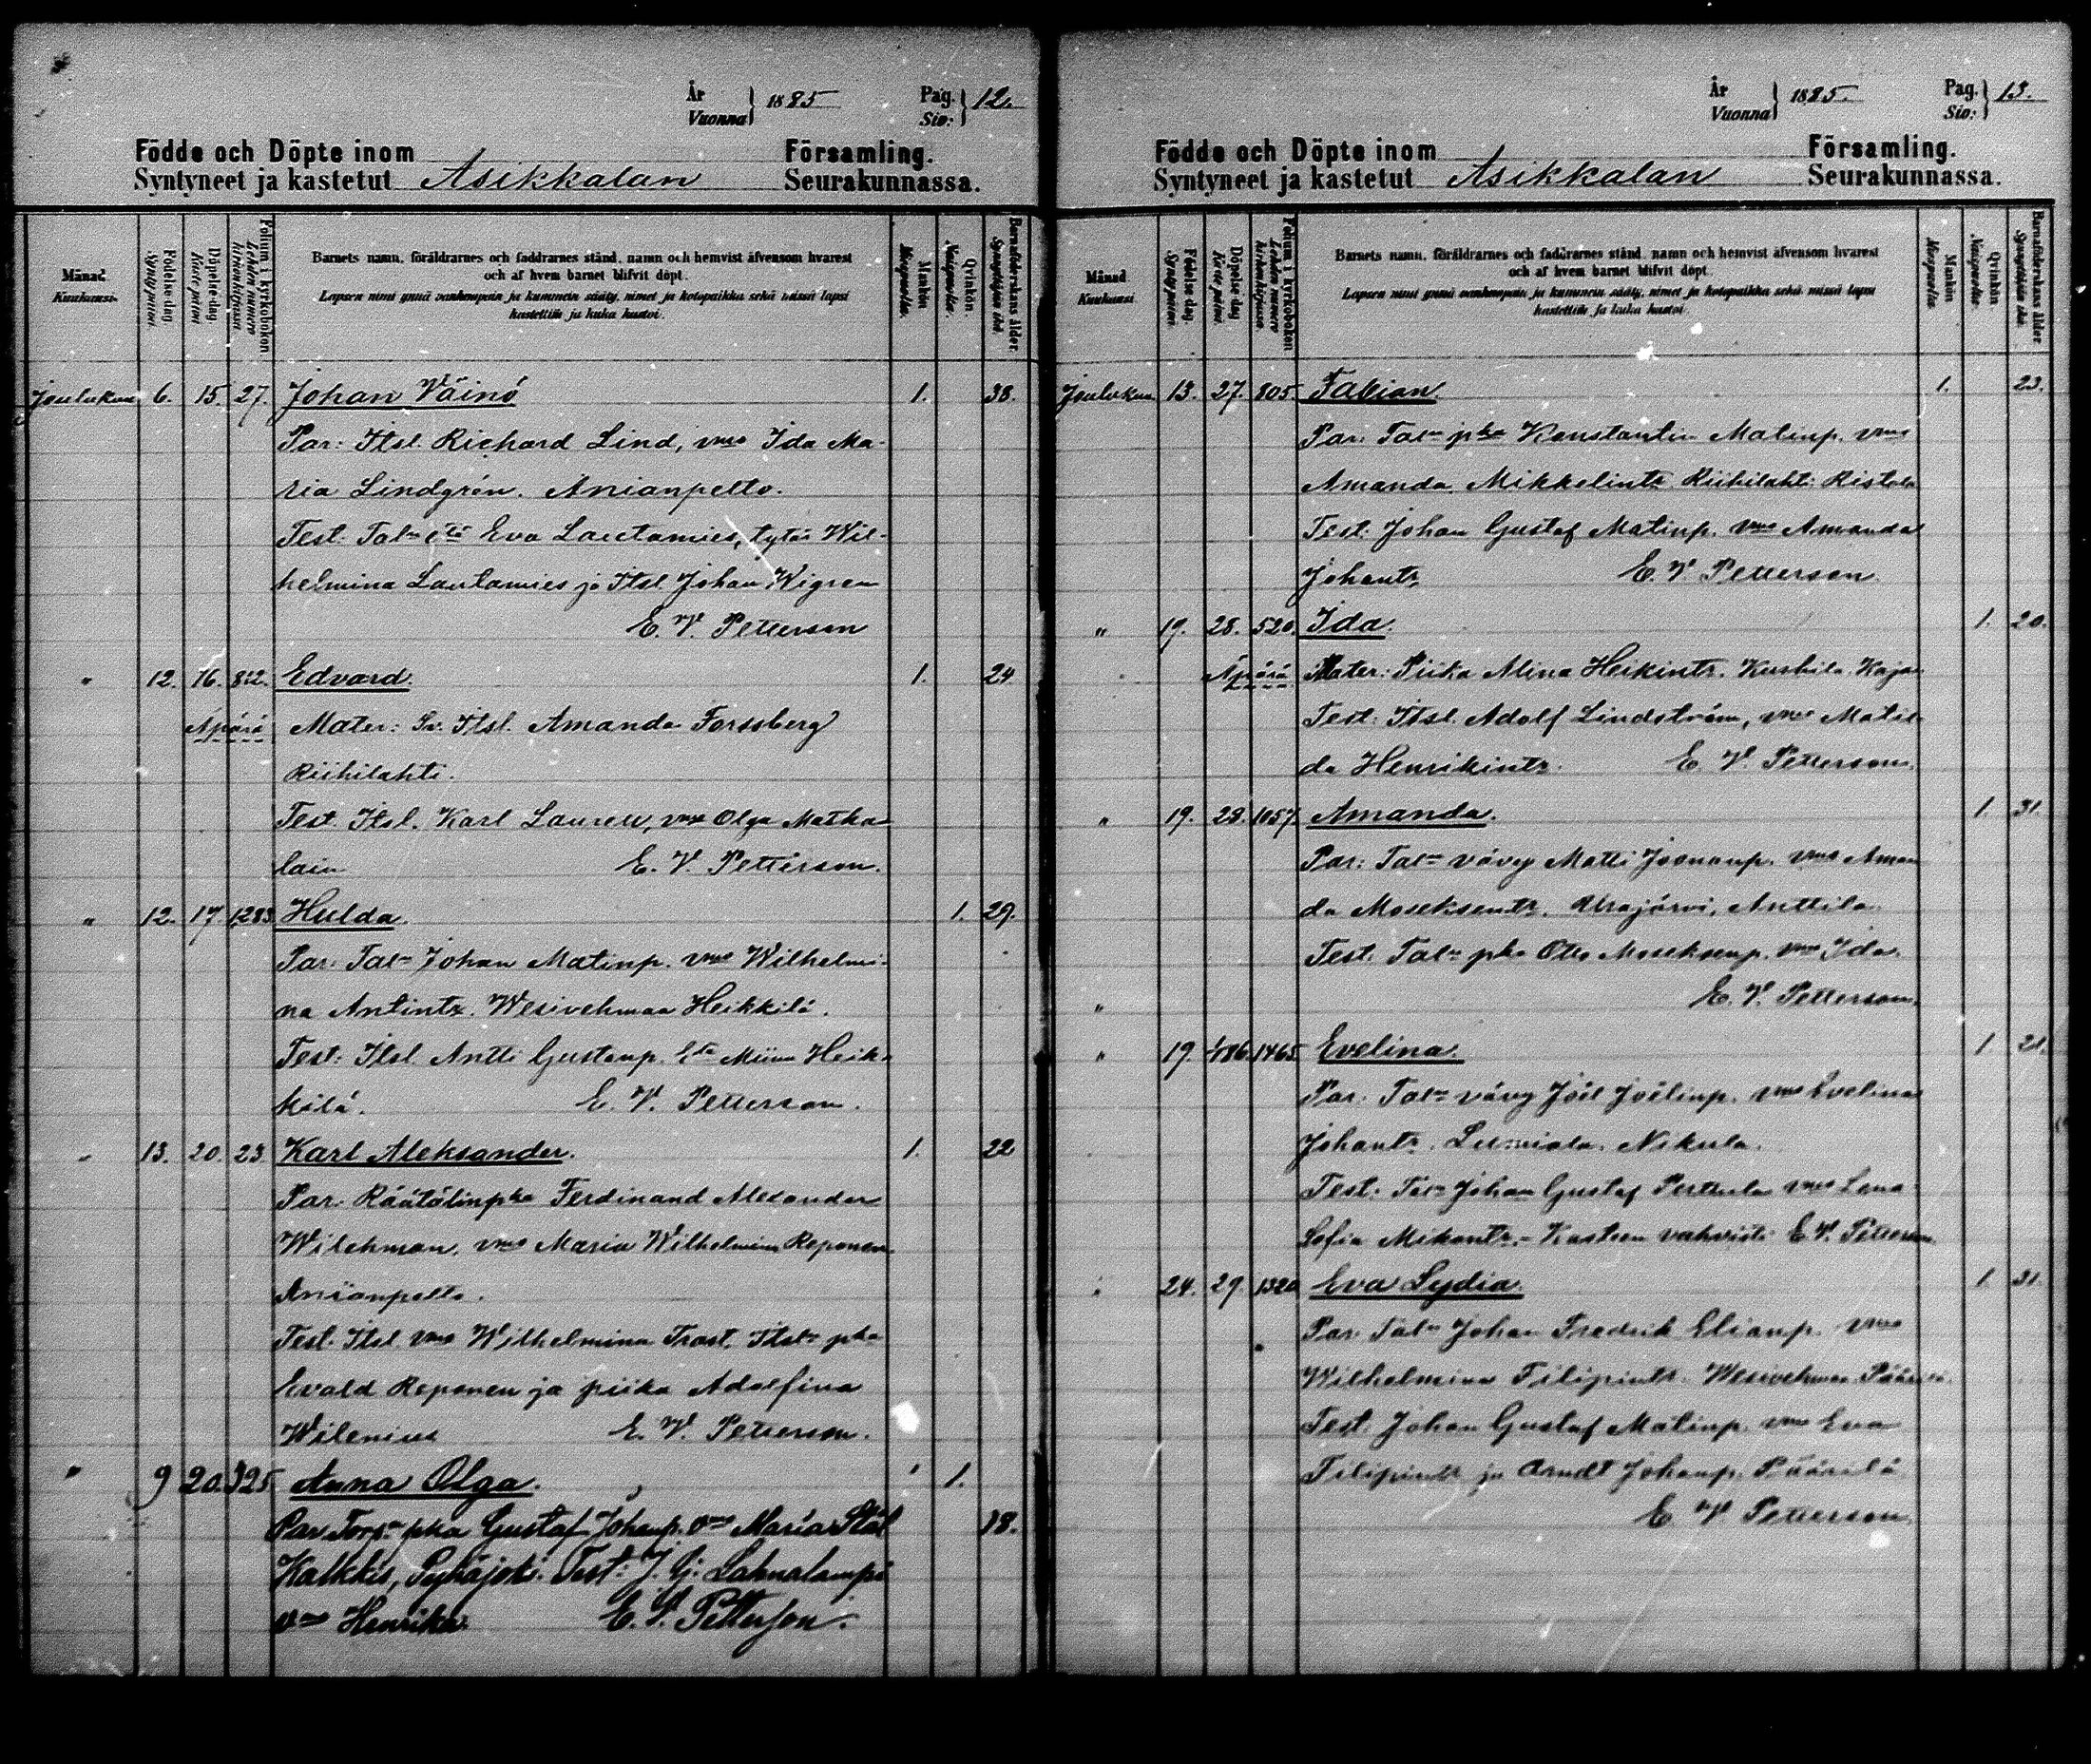 År
Vuonna } 1885
Pag.
Siv: } 12.
Födde och Döpte inom Församling.
Syntyneet ja kastetut Asikkalan Seurakunnassa.
Månad. Kuukausi.
Födelse-dag. Syntypäivä
Döpelse-dag Kastepäivä
Folium i kyrkoboken Lehden numero kirkonkirjassa
Barnets namn, föräldrarnes och faddrarnes stånd, namn och hemvist äfvensom hvarest
och af hvem barnet blifvit döpt.
Lapsen nimi ynnä vanhempain ja kummein sääty, nimet ja kotopaikka sekä missä lapsi
kastettiin ja kuka kastoi.
Mankön Miespuolta.
Qvinkön Vaispuolta.
Barnaföderskans ålder. Synnyttäjän ikä.
Joulukuu 6. 15. 27. Johan Väinö 1. 38.
Par: Itsl. Richard Lind, vmo Ida Ma-
ria Lindgrén. Anianpelto.
Test: Tal:n Eva Lautamies, tytär Wil-
helmina Lautamies ja Itsl. Johan Wigren
E. V. Petterson
" 12. 16. 812. Edvard 1. 24
Äpärä Mater: Itsl. Amanda Forssberg
Riihilahti.
Test. Itsl. Karl Lauren, vmo Olga Matka
lain E. V. Petterson.
" 12. 17. 1283 Hulda. 1. 29.
Par: Tal:n Johan Matinp. vmo Wilhelmi-
na Antintr. Wesivehmaa Heikkilä.
Test: Itsl. Antti Gustanp. Miina Heik-
kilä. E. V. Petterson.
" 13. 20. 23 Karl Aleksander. 1. 22
Par: Räätälinpka Ferdinand Alexander
Wilchman, vmo Maria Wilhelmina Reponen
Anianpelto.
Test. Itsl. vmo Wilhelmina Trast, Itsl:n pka
Evald Reponen ja piika Adolfina
Wilenius E. V. Petterson.
" 9 20. 325 Anna Olga. 1.
Par. Torp:n pka Gustaf Johanp. vmo Maria Stål 18.
Kalkkis, Pyhäjok: Test: J. G. Lahnalampi
vmo Henrika. E. V. Petterson.
År
Vuonna } 1885.
Pag.
Siv: } 13.
Födde och Döpte inom Församling.
Syntyneet ja kastetut Asikkalan Seurakunnassa.
Månad Kuukausi.
Födelse-dag. Syntypäivä
Döpelse-dag Kastepäivä
Folium i kyrkoboken Lehden numero kirkonkirjassa
Barnets namn, föräldrarnes och faddrarnes stånd, namn och hemvist äfvensom hvarest
och af hvem barnet blifvit döpt.
Lapsen nimi ynnä vanhempain ja kummein sääty, nimet ja kotopaikka sekä missä lapsi
kastettiin ja kuka kastoi
Mankön Miespuolta.
Qvinkön Vaispuolta.
Barnaföderskans ålder Synnyttäjän ikä.
Joulukuu 13. 27. 805. Fabian. 1. 23.
Par: Tal:n pka Konstantin Matinp. vmo
Amanda Mikkelintr. Riihilahti Ristola
Test: Johan Gustaf Matinp. vmo Amanda
Johantr E. V. Petterson.
" 19. 28. 520. Ida. 1. 20.
Äpärä Mater: Piika Alina Heikintr. Kurhila Kaja
Test: Itsl. Adolf Lindström, vmo Matil-
da Henrikintr. E. V. Petterson.
" 19. 28. 1057 Amanda. 1. 31.
Par: Tal:n vävy Matti Joonanp. vmo Aman
da Moseksentr. Urajärvi, Anttila
Test: Tal:n pka Otto Moseksenp. vmo Ida.
" E. V. Petterson.
" 19. 1/1 86. 1465 Evelina. 1 21.
Par: Tal:n vävy Joël Joëlinp. vmo Evelina
Johantr. Lusniala. Nikula.
Test: Tal:n Johan Gustaf Perttula vmo Lena
Sofia Mikontr. - Kasteen vahvisti E. V. Petterson
" 24. 29. 1320 Eva Lydia. 1 31.
Par: Tal:n Johan Fredrik Elianp. vmo
Wilhelmina Filipintr. Wesivehmaa Päärilä
Test: Johan Gustaf Matinp. vmo Eva
Filipintr ja Arndt Johanp. Päärilä
E. V. Petterson.